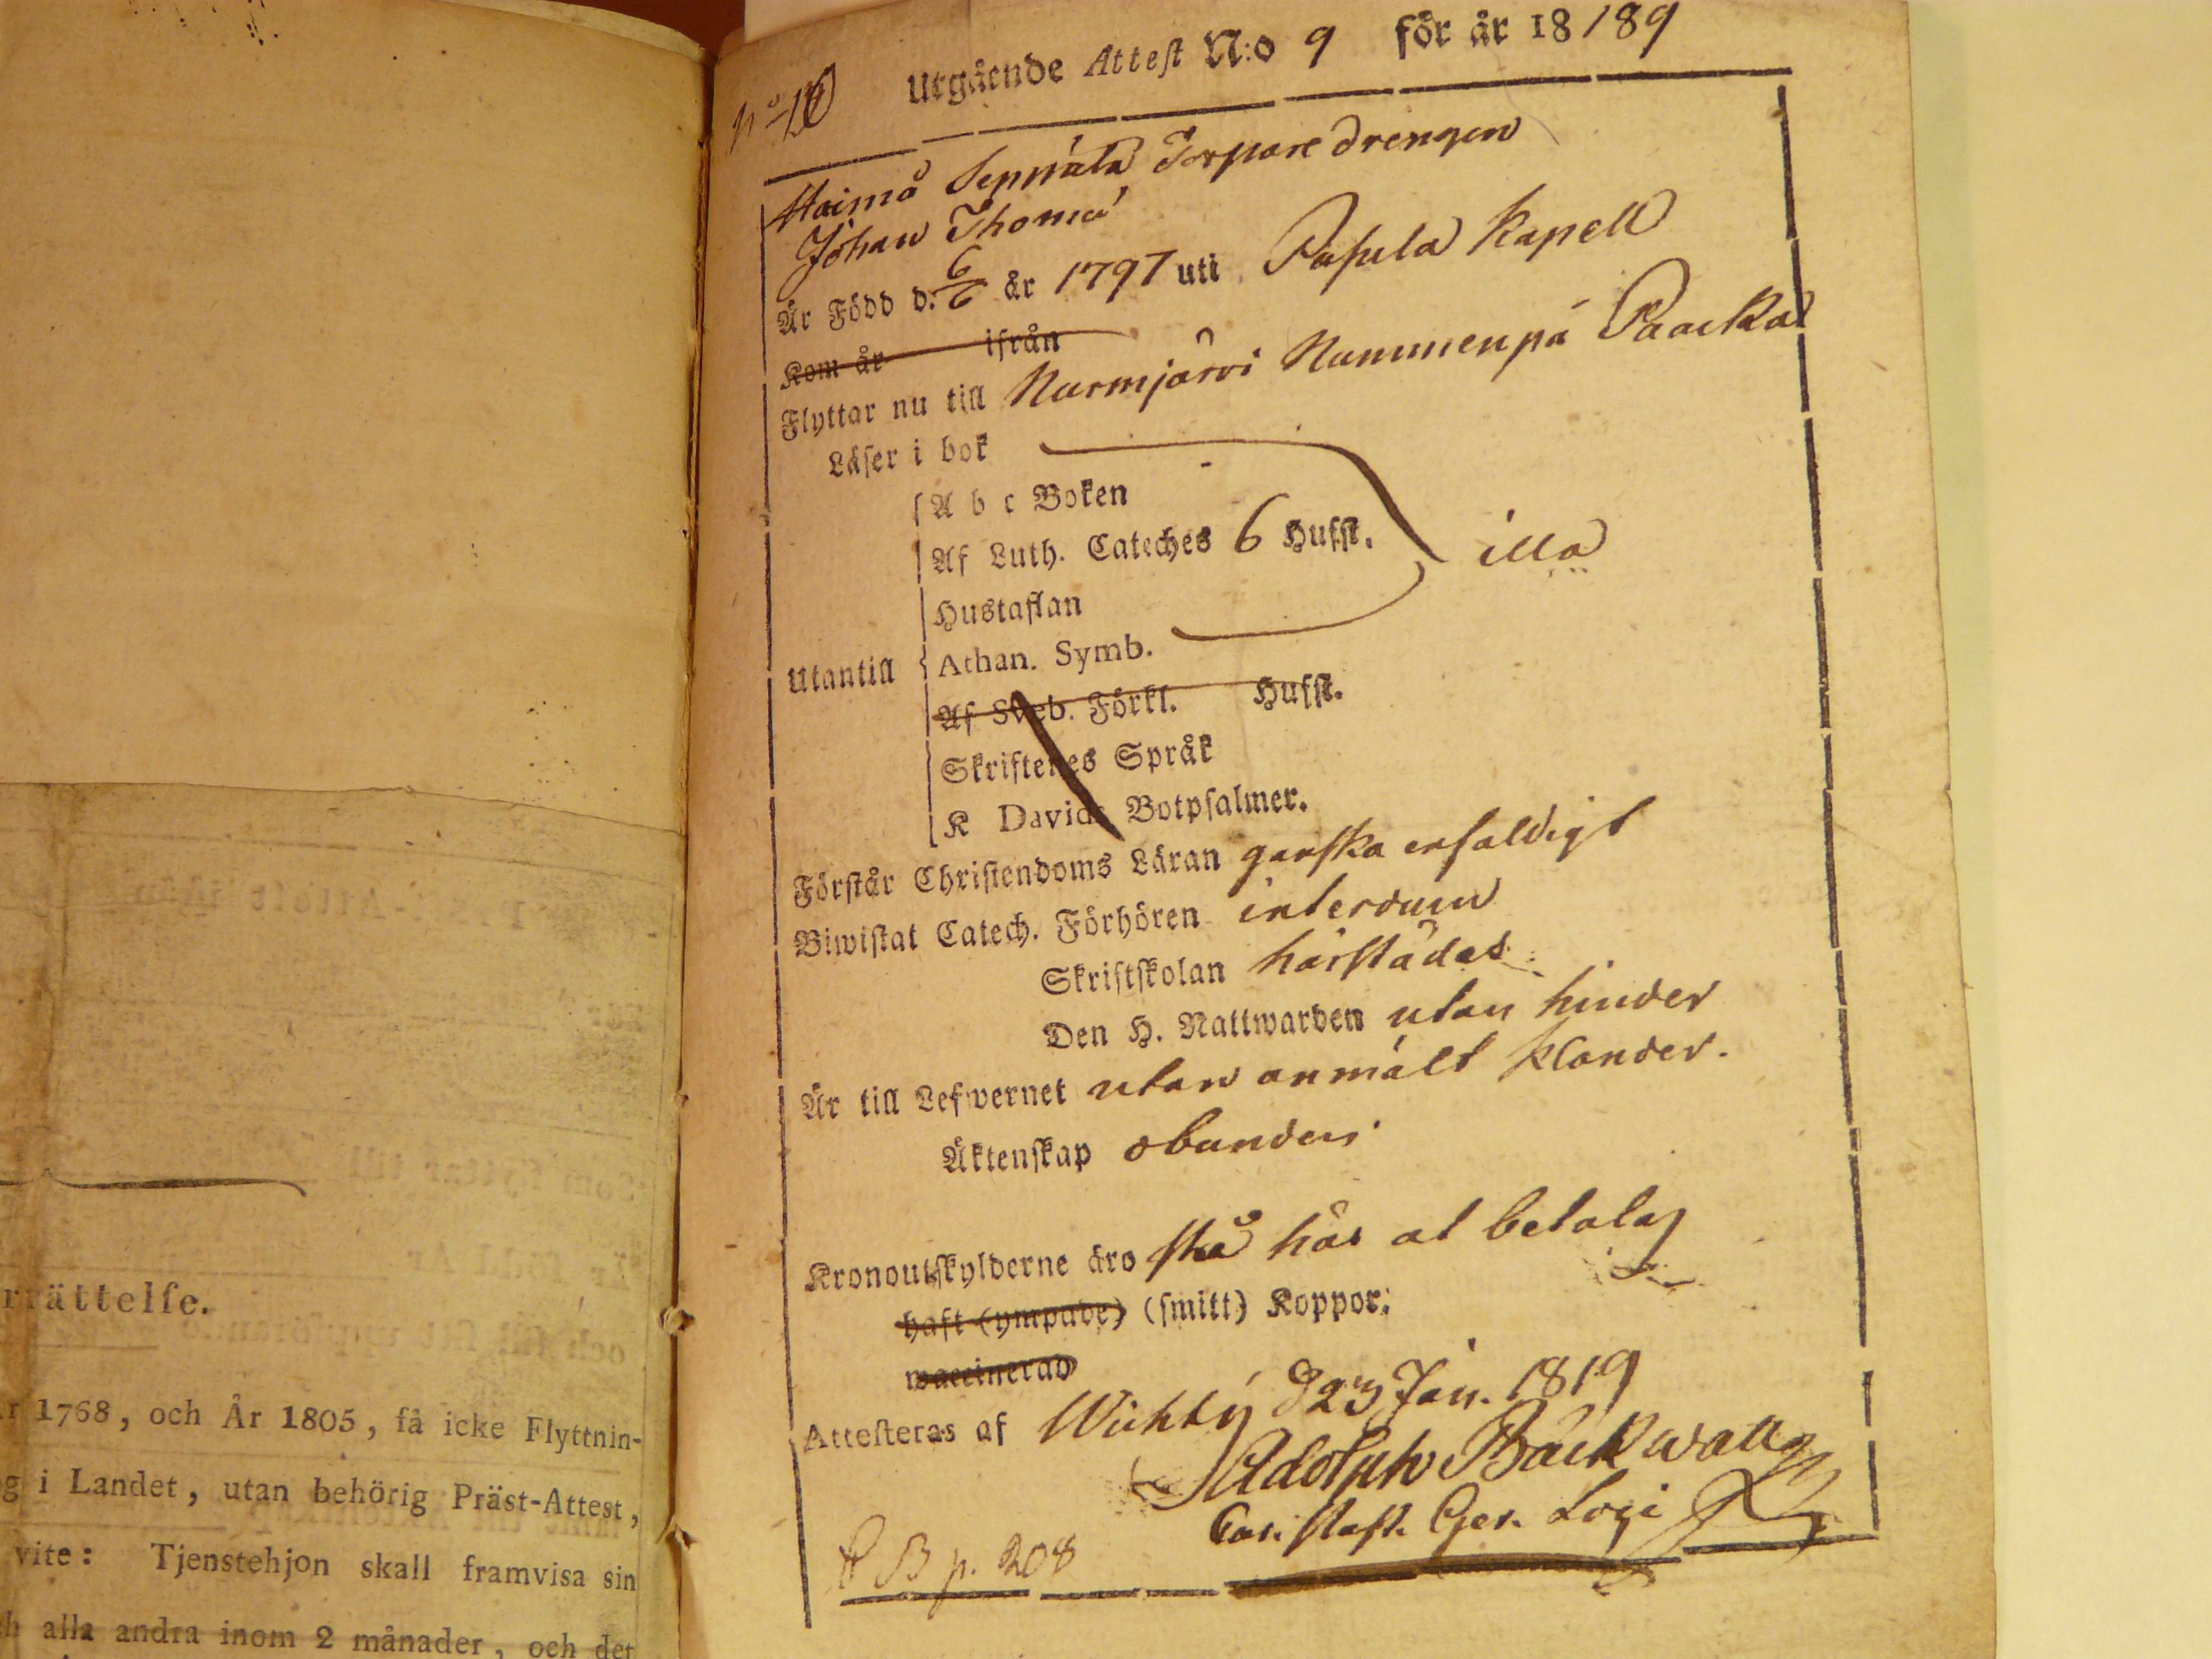 rrättelse.
r 1768, och År 1805, få icke Flyttnin-
g i Landet, utan behörig Präst-Attest,
vite: Tjenstehjon skall framvisa sin
h alla andra inom 2 månader, och det
Utgående Attest N:o 9 för år 18/89
Haimå Seppälä Torpare drengen
Johan Thomä
Är Född d. 6/6 år 1797 uti Pusula Kapell
Kom år ifrån
Flyttar nu till Nurmjärvi Nummenpä Paacka
Läser i bok
A b c Boken
Af Luth. Cateches 6 Hufst. illa
Hustaflan
Utantill Athan. Symb.
Af Sveb. Förkl. Hufst.
Skriftenes Språk
K Davids Botpsalmer.
Förstår Christendoms Läran ganska enfaldigt
Biwistat Catech. Förhören interdum
Skriftskolan härstädes
Den H. Nattwarden utan hinder
Är till Lefwernet utan anmält klander.
Äktenskap obunden
Kronoutskylderne äro stå här at betalas
haft (ympade) (smitt) Koppor.
waccinerad
Attesteras af Wichty d 23 Jan. 1819
Adolph Bäckwall
R B p. 208